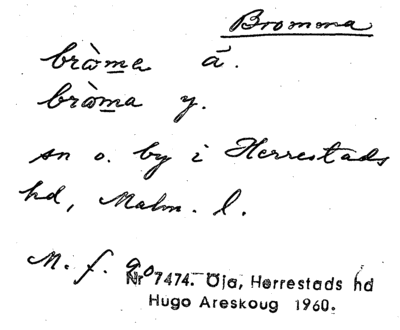 Bromma
bròma á.
bròma y.
sn o. by i Herrestads
hd, Malm. l.
M. f. 90
Nr 7474. Öja, Herrestads hd
Hugo Areskoug 1960.